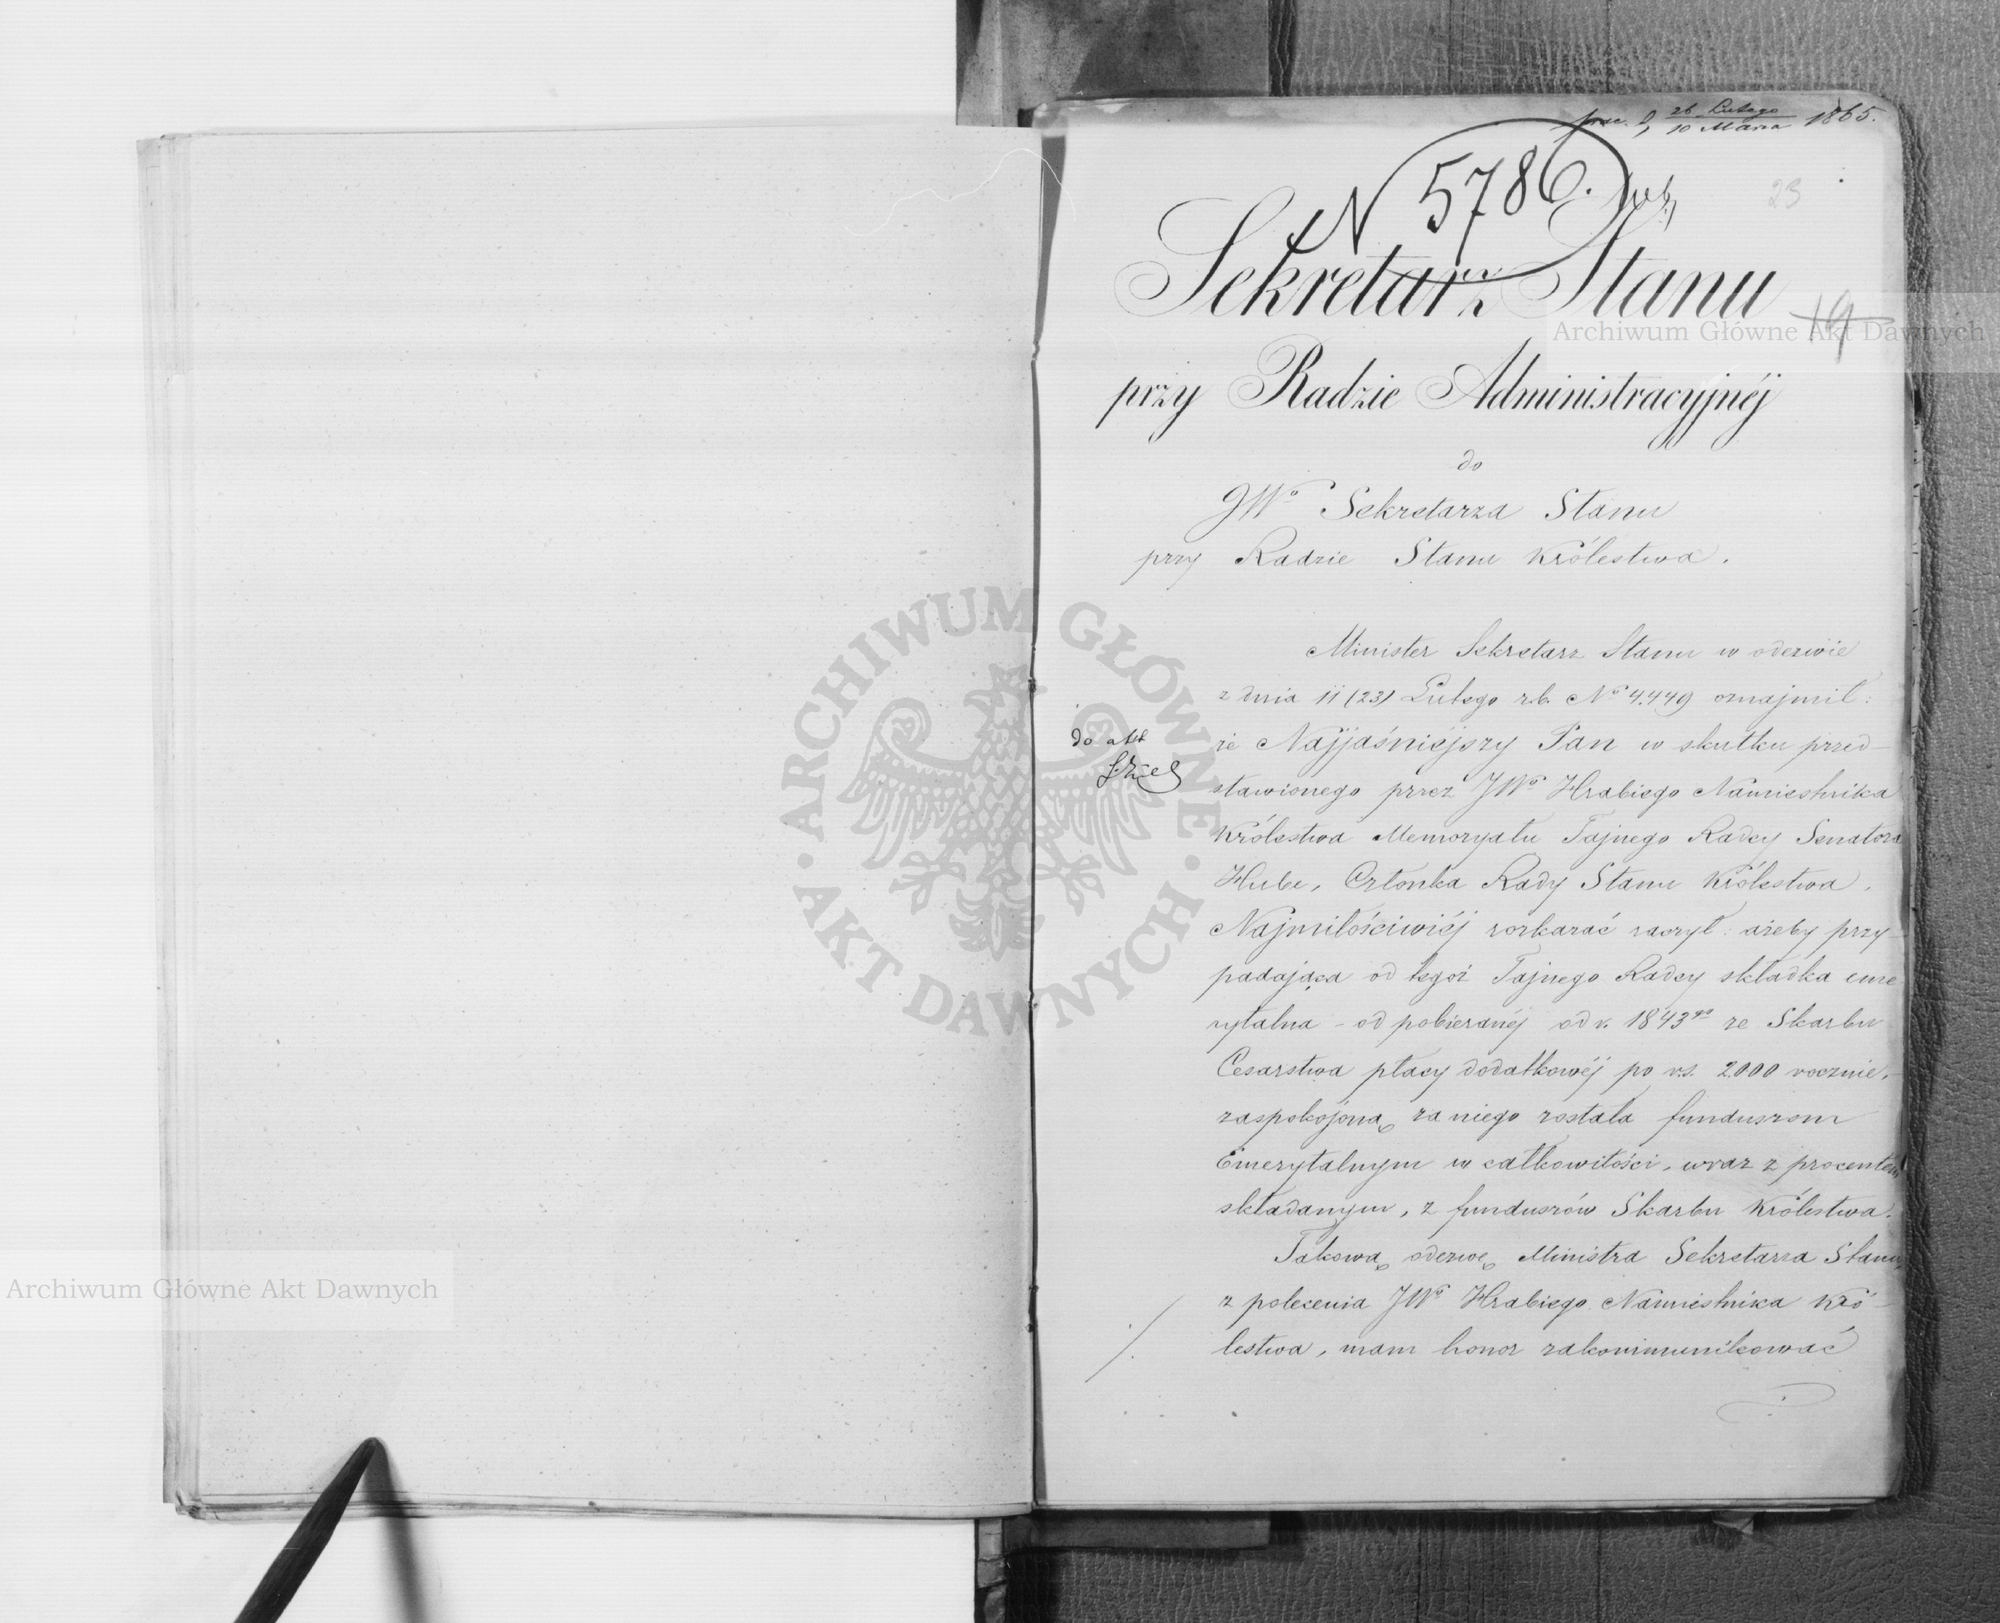 26 Lutego
10 Marca 1865.
N 5786.
23
Sekretarz Stanu
19
przy Radzie Administracyjnéj
do
JWo Sekretarza Stanu
przy Radzie Stanu Królestwa.
Minister Sekretarz Stanu w odezwie
z dnia 11 (23) Lutego r.b. No 4.449 oznajmił:
do akt
że Najjaśniéjszy Pan w skutku przed-
stawionego przez JWo Hrabiego Namiestnika
Królestwa Memoryału Tajnego Radcy Senatora
Hube, Członka Rady Stanu Królestwa,
Najmiłościwiéj rozkazać raczył: ażeby przy-
padająca od tegoż Tajnego Radcy składka eme
rytalna - od pobieranéj od r. 1843go ze Skarbu
Cesarstwa płacy dodatkowéj po r.s. 2000 rocznie,
zaspokojoną za niego została funduszom
Emerytalnym w całkowitości, wraz z procentem
składanym, z funduszów Skarbu Królestwa.
Takową odezwę Ministra Sekretarza Stanu,
z polecenia JWo Hrabiego Namiestnika Kró-
lestwa, mam honor zakommunikować
ARCHIWUM GŁÓWNE AKT DAWNYCH
Archiwum Główne Akt Dawnych
Archiwum Główne Akt Dawnych